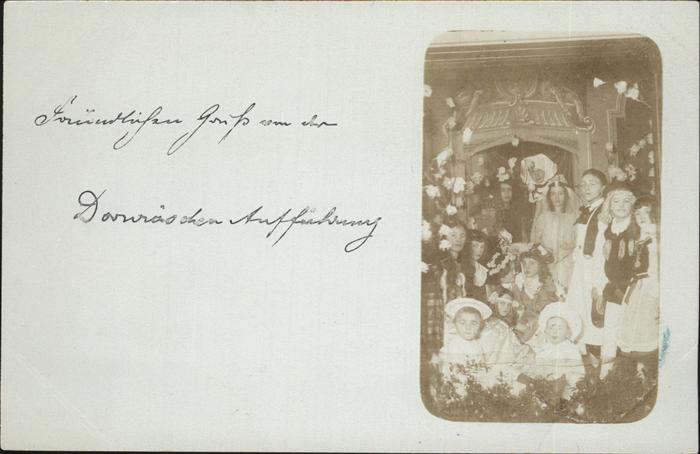 Freundlichen Gruß von der
Dornröschen Aufführung